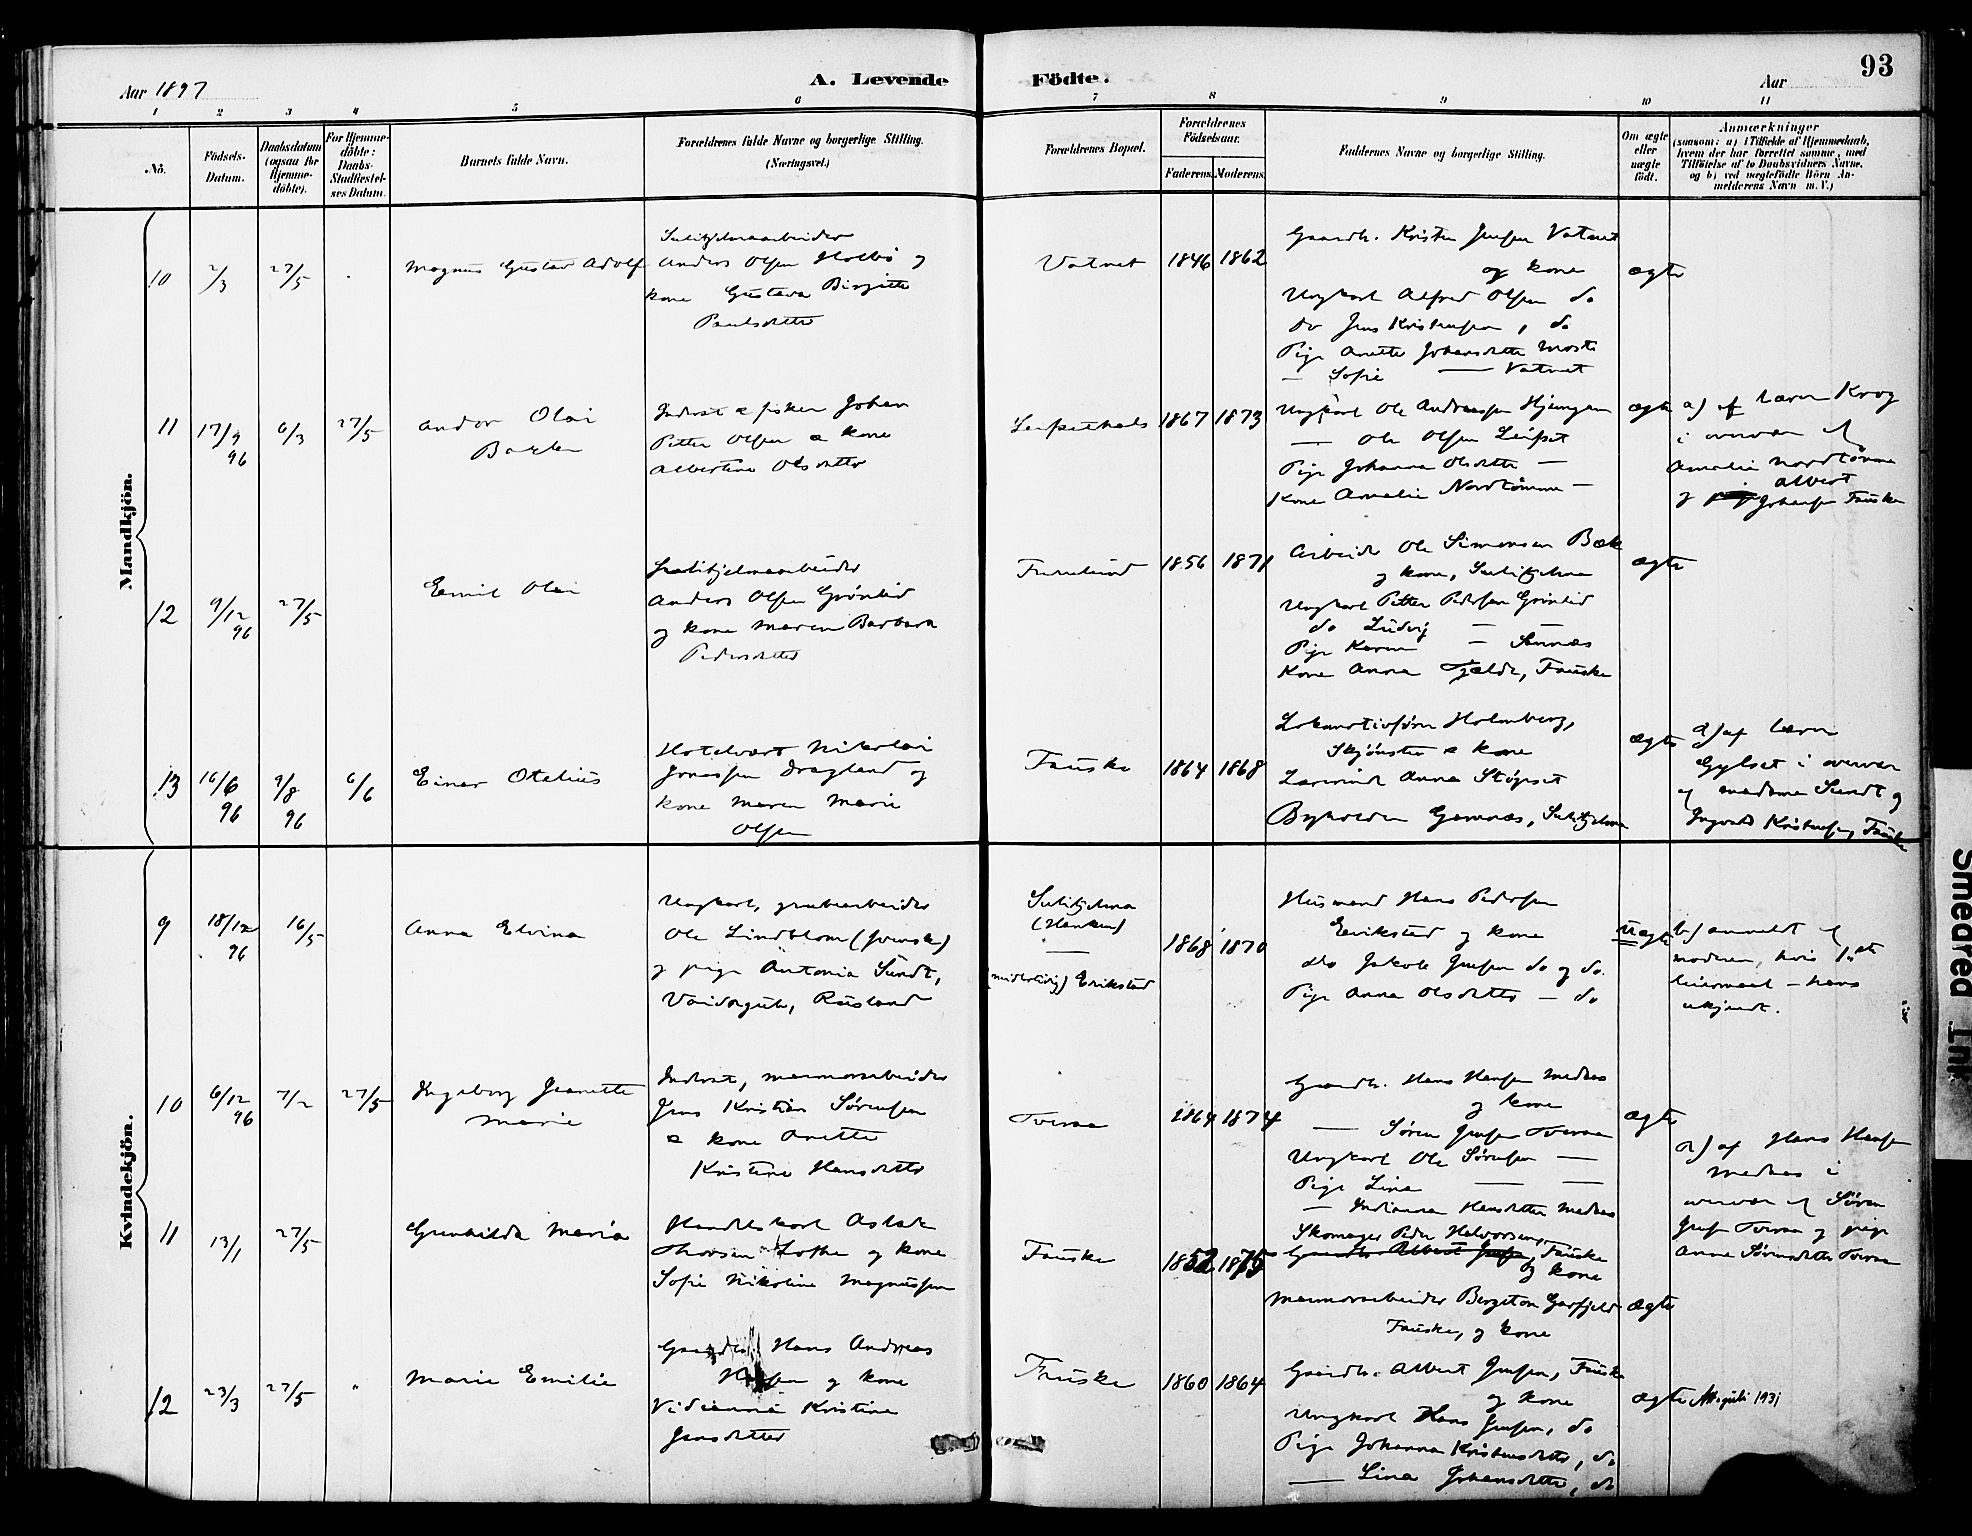 93
Aar 1897
A. Levende Födte.
Aar
1 2 3 4 5 6 7 8 9 10 11
No.
Födsels-Datum.
Daabsdatum (ogsaa for Hjemme-döbte).
For Hjemme-döbte: Daabs-Stadfæstel-ses Datum.
Barnets fulde Navn.
Forældrenes fulde Navne og borgerlige Stilling. (Næringsvei.)
Forældrenes Bopæl.
Forældrenes Födselsaar.
Faderens. Moderens.
Faddernes Navne og borgerlige Stilling.
Om ægte eller uægte födt.
Anmærkninger
(saasom: a) i Tilfælde af Hjemmedaab,
hvem der har forrettet samme, med
Tilföielse af to Daabsvidners Navne,
og b) ved uægtefödte Börn An-
melderens Navn m. V.)
Mandkjön.
10 2/3 27/5
Magnus Gustav Adolf
Sulitjelmaarbeider
Anders Olsen Holbö og
kone Gustava Birgitte
Paulsdatter
Vatnet 1846 1862
Gaardb. Kristen Jensen Vatnet
og kone
Ungkarl Alfred Olsen do
do Jens Kristensen, do
Pige Anette Johansdatter Moste
— Sofie — Vatnet
ægte
11 17/9 96 6/3 27/5
Andor Olai
Inderst & fisker Johan
Petter Olsen & kone
Albertine Olsdatter
1867 1873
Ungkarl Ole Andreassen
— Ole Olsen Leifset
Pige Johanna Olsdatter —
Kone Amalie Nordtömme —
ægte
a) af lærer Krog
i overvær af
Amalie Nordtömme
og Albert
Johansen Fauske
12 9/12 96 27/5
Emil Olai
Sulitjelmaarbeider
Anders Olsen Grönlid
og kone Maren Barbara
Pedersdatter
Furulund 1856 1871
Arbeider Ole Simonsen Bæk
og kone, Sulitjelma
Ungkarl Petter Pedersen Grönlid
do Ludvig — —
Pige Karen —
Kone Anna Fjelde, Fauske
ægte
13 16/6 96 9/8 96 6/6
Einar Otelius
Hotelvært Nikolai
Jonassen Dragland og
kone Maren Marie
Olsen
Fauske 1864 1868
Lokomotivförer Holmberg,
Skjönstu & kone
Lærerinde Anna Stöpset
Sulitjelma
ægte
a) af lærer
Gylset i overvær
af madame Sundt og
Ingvald Kristensen, Fauske
Kvindekjön.
9 18/12 96 16/5
Anna Elvina
Ungkarl, grubearbeider
Ole Lindblom (svensk)
og pige Antonia Sundt,
Ranland
Sulitjelma
(Hanken)
—
(midlertidig) Erikstad
1868 1870
Husmand Hans Pedersen
Erikstad og kone
do Jakob Jensen do og do.
Pige Anna Olsdatter — do
uægte
b) anmeldt af
moderen, hvis 1ste
leiermaal — hans
ukjendt.
10 6/12 96 7/2 27/5
Ingeborg Jeanette
Marie
Inderst, marmorarbeider
Jens Kristian Sörensen
& kone Anette
Kristine Hansdatter
Tveraa 1864 1874
Gaardb. Hans Hansen Medaas
og kone
— Sören Jensen Tveraa
Ungkarl Ole Sörensen —
Pige Lina — —
— Indianna Hansdatter Medaas
ægte
a) af Hans Hansen
Medaas i
overvær af Sören
Jensen Tveraa og pige
Anne Sörensdatter Tveraa
11 13/1 27/5
Gunhilda Maria
Handelskarl Aslak
Thorsen Lothe og kone
Sofie Nikoline Magnussen
Fauske 1852 1875
Skomager Peder Halvorsen,
Gaardb. Albert Jensen, Fauske
og kone
Marmorarbeider Bergeton Garfjeld
Fauske, og kone
ægte
12 23/3 27/5
Marie Emilie
Gaardb. Hans Andreas
Hansen og kone
Vidianna Kristine
Jensdatter
Fauske 1860 1864
Gaardb. Albert Jensen, Fauske
og kone
Ungkarl Hans Jensen, do
Pige Johanna Kristensdatter, do
— Lina Johansdatter, do
ægte
1931
Smeared Ink